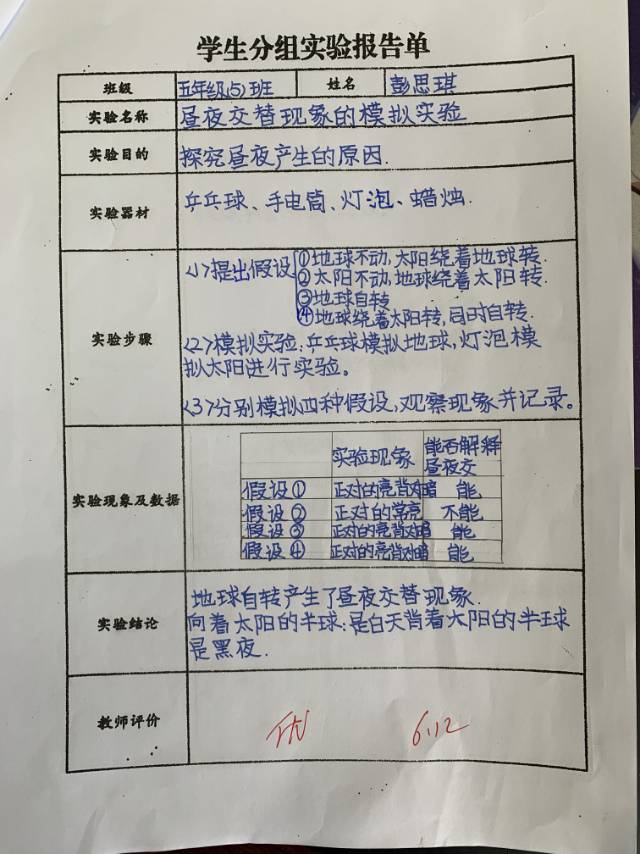 学生分组实验报告单
班级 五年级(5)班 姓名 彭思琪
实验名称 昼夜交替现象的模拟实验
实验目的 探究昼夜产生的原因.
实验器材 乒乓球、手电筒、灯泡、蜡烛.
实验步骤
<1>提出假设 ①地球不动,太阳绕着地球转.
②太阳不动,地球绕着太阳转.
③地球自转
④地球绕着太阳转,同时自转.
<2>模拟实验:乒乓球模拟地球,灯泡模
拟太阳进行实验。
<3>分别模拟四种假设,观察现象并记录。
实验现象及数据
实验现象 能否解释
昼夜交
假设① 正对的亮背对暗 能
假设② 正对的常亮 不能
假设③ 正对的亮背对暗 能
假设④ 正对的亮背对暗 能
实验结论
地球自转产生了昼夜交替现象.
向着太阳的半球:是白天背着太阳的半球
是黑夜.
教师评价 优 6.12